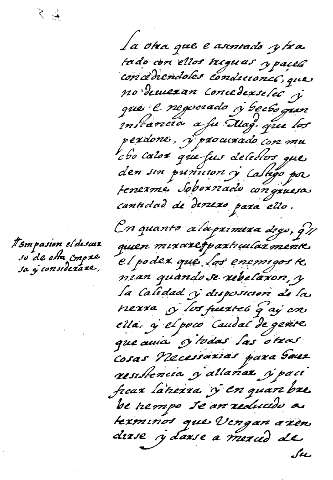 La otra que e asentado y tra
tado con ellos treguas y paces
concediendoles condiciones, que
no devieran concederseles y
que e negociado y hecho gran
instancia a su Magd. que los
perdone, y procurado con mu
cho calor que sus delictos que
den sin punicion y castigo por
tenerme sobornado con gruesa
cantidad de dinero para ello.
En quanto a la primera digo, que si
quien mirare particularmente
*sin pasion el discur
so de esta empre
sa y considerare,
el poder que los enemigos te
nian quando se rebelaron, y
la calidad y disposicion de la
tierra y los fuertes que ay en
ella y el poco caudal de gente
que avia y todas las otras
cosas necesarias para hacer
resistencia y allanar y paci
ficar la tierra y en quan bre
be tiempo se an reducido a
terminos que vengan a ren
dirse y darse a merced de
su